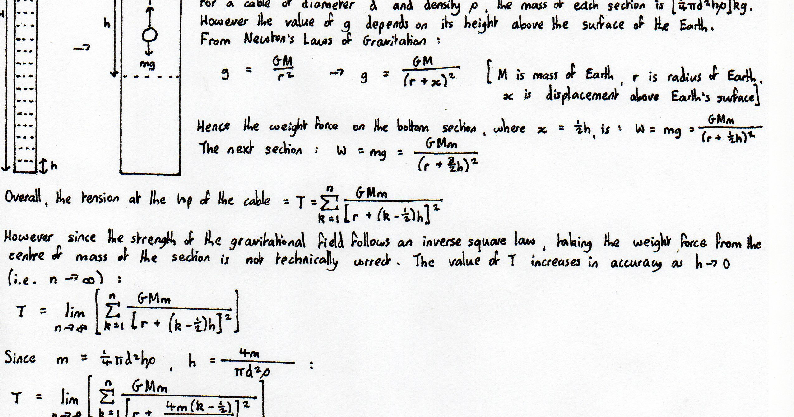 For a cable of diameter d and density ρ, the mass of each section is [¼πd²hρ]kg.
However the value of g depends on its height above the surface of the Earth.
From Newton's Laws of Gravitation :
h
mg
g = GM/r² → g = GM/(r + x)² [M is mass of Earth, r is radius of Earth,
x is displacement above Earth's surface]
Hence the weight force on the bottom section, where x = ½h, is : W = mg = GMm/(r + ½h)²
The next section : W = mg = GMm/(r + 3/2h)²
h
Overall, the tension at the top of the cable = T = Σ_{k=1}^{n} GMm/[r + (k-½)h]²
However since the strength of the gravitational field follows an inverse square law, taking the weight force from the
centre of mass of the section is not technically correct. The value of T increases in accuracy as h → 0
(i.e. n → ∞) :
T = lim_{n→∞} [Σ_{k=1}^{n} GMm/[r + (k-½)h]²]
Since m = ¼πd²hρ, h = 4m/πd²ρ :
T = lim [Σ^{n} GMm/[r + 4m(k-½)]²]